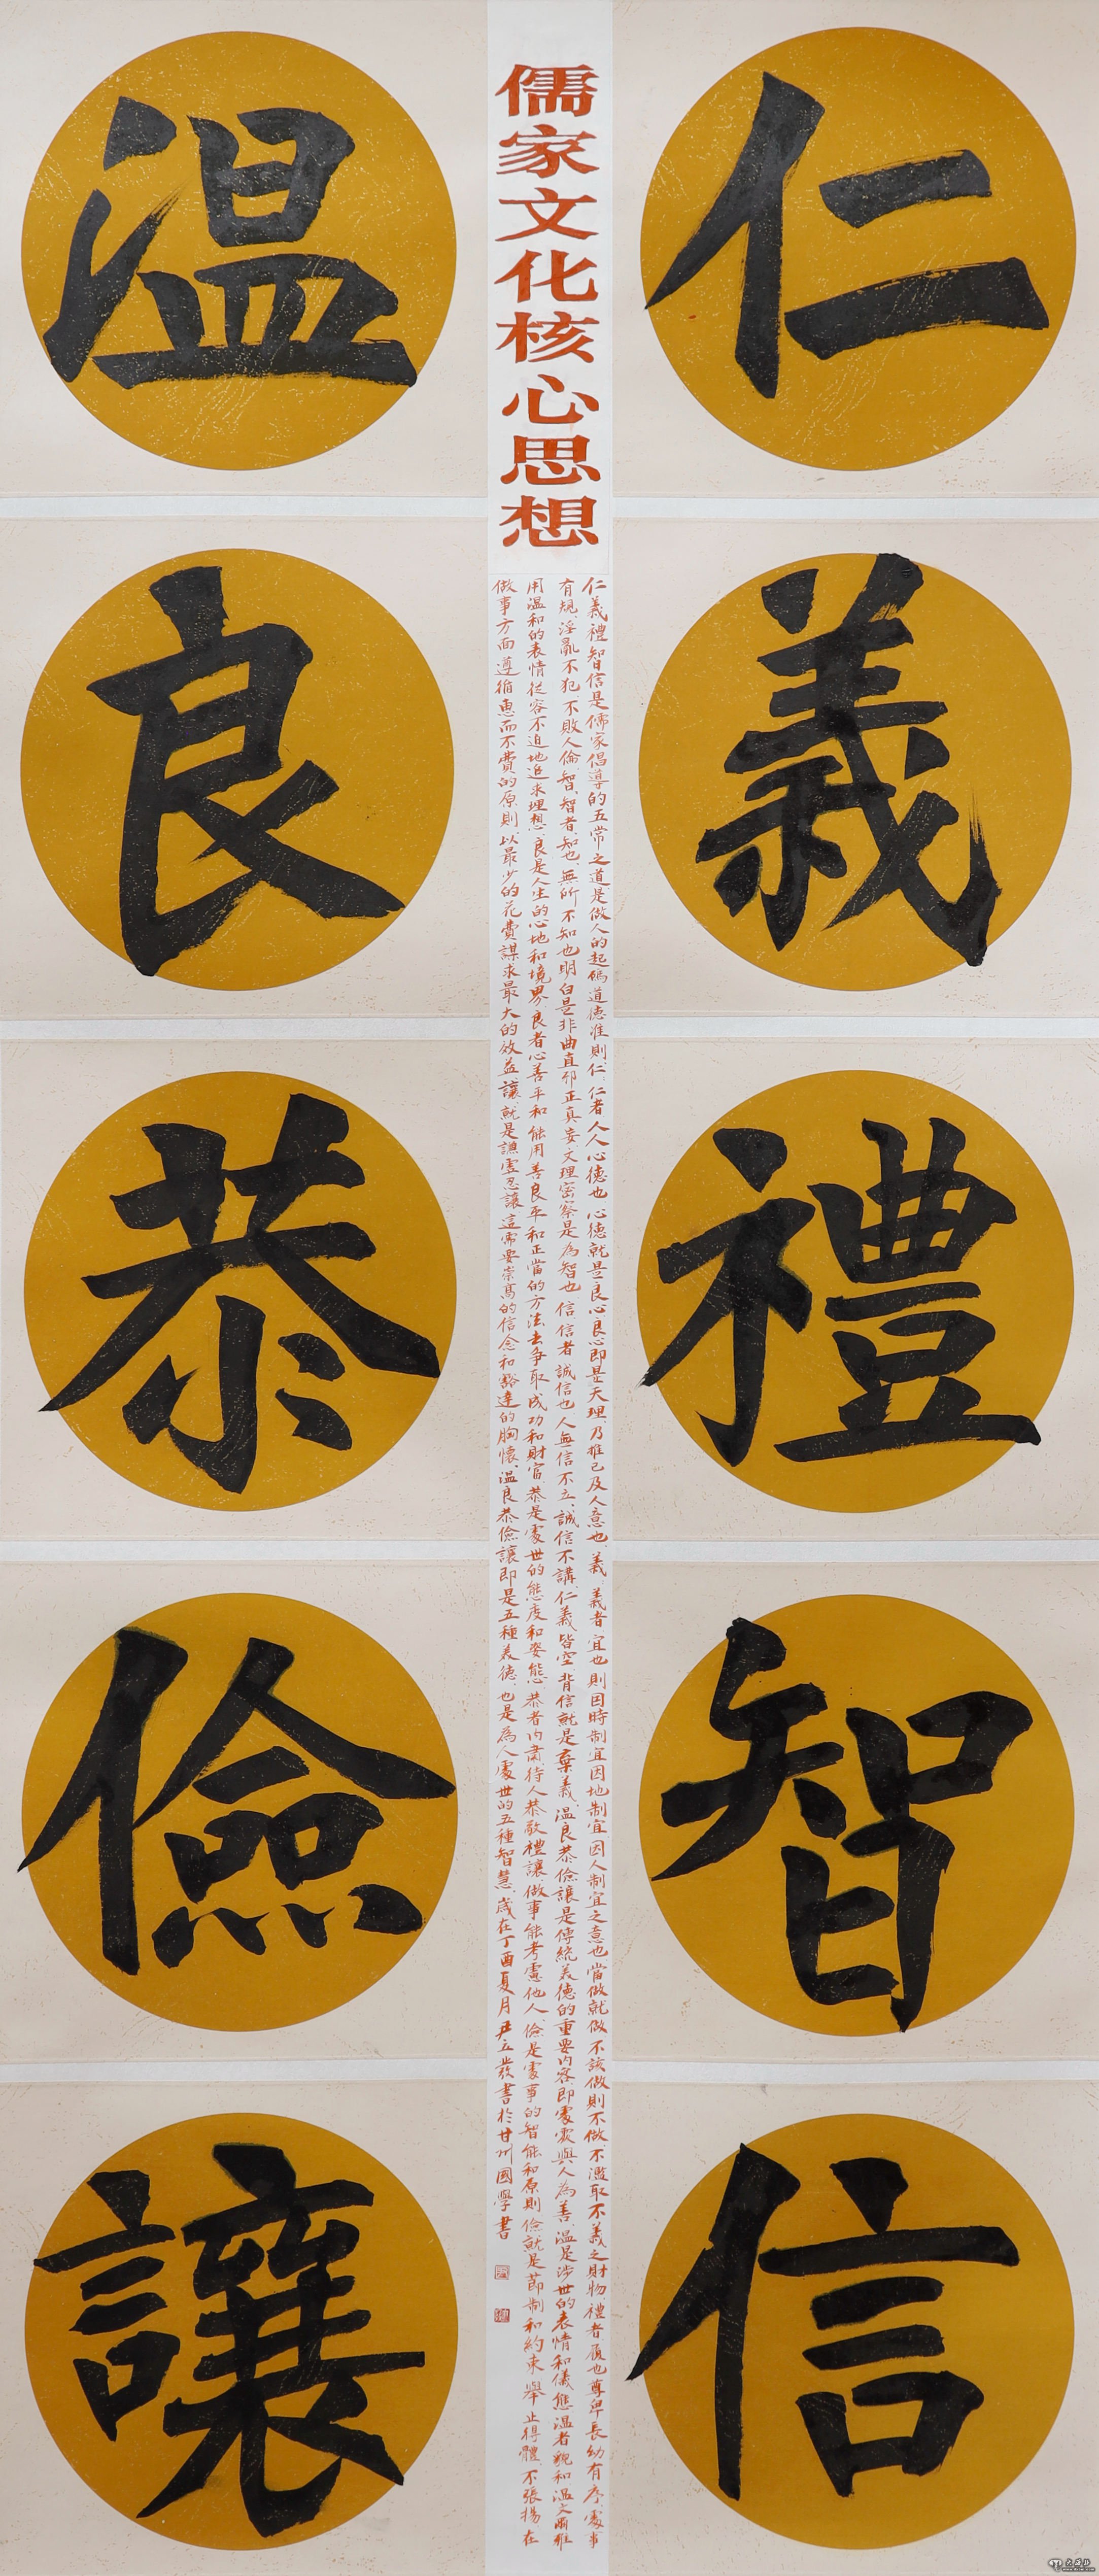 仁
義
禮
智
信
儒家文化核心思想
仁義禮智信是儒家倡導的五常之道是做人的起碼道德准則仁仁者人人心德也心德就是良心良心即是天理乃推己及人意也義義者宜也則因時制宜因地制宜因人制宜之意也當做就做不該做則不做不濫取不義之財物禮者履也尊卑長幼有序處事
有規淫亂不犯不敗人倫智智者知也無所不知也明白是非曲直邪正真妄文理密察是為智也信信者誠信也人無信不立誠信不講仁義皆空背信就是棄義温良恭儉讓是傳統美德的重要內容即處處與人為善温是涉世的表情和儀態温者貌和温文爾雅
用温和的表情從容不迫地追求理想良是人生的心地和境界良者心善平和能用善良平和正當的方法去爭取成功和財富恭是處世的態度和姿態恭者內肅待人恭敬禮讓做事能考慮他人儉是處事的智能和原則儉就是節制和約束舉止得體不張揚在
做事方面遵循惠而不費的原則以最少的花費謀求最大的效益讓就是謙虛忍讓這需要崇高的信念和豁達的胸懷温良恭儉讓即是五種美德也是為人處世的五種智慧歲在丁酉夏月尹立發書於甘州國學書
温
良
恭
儉
讓